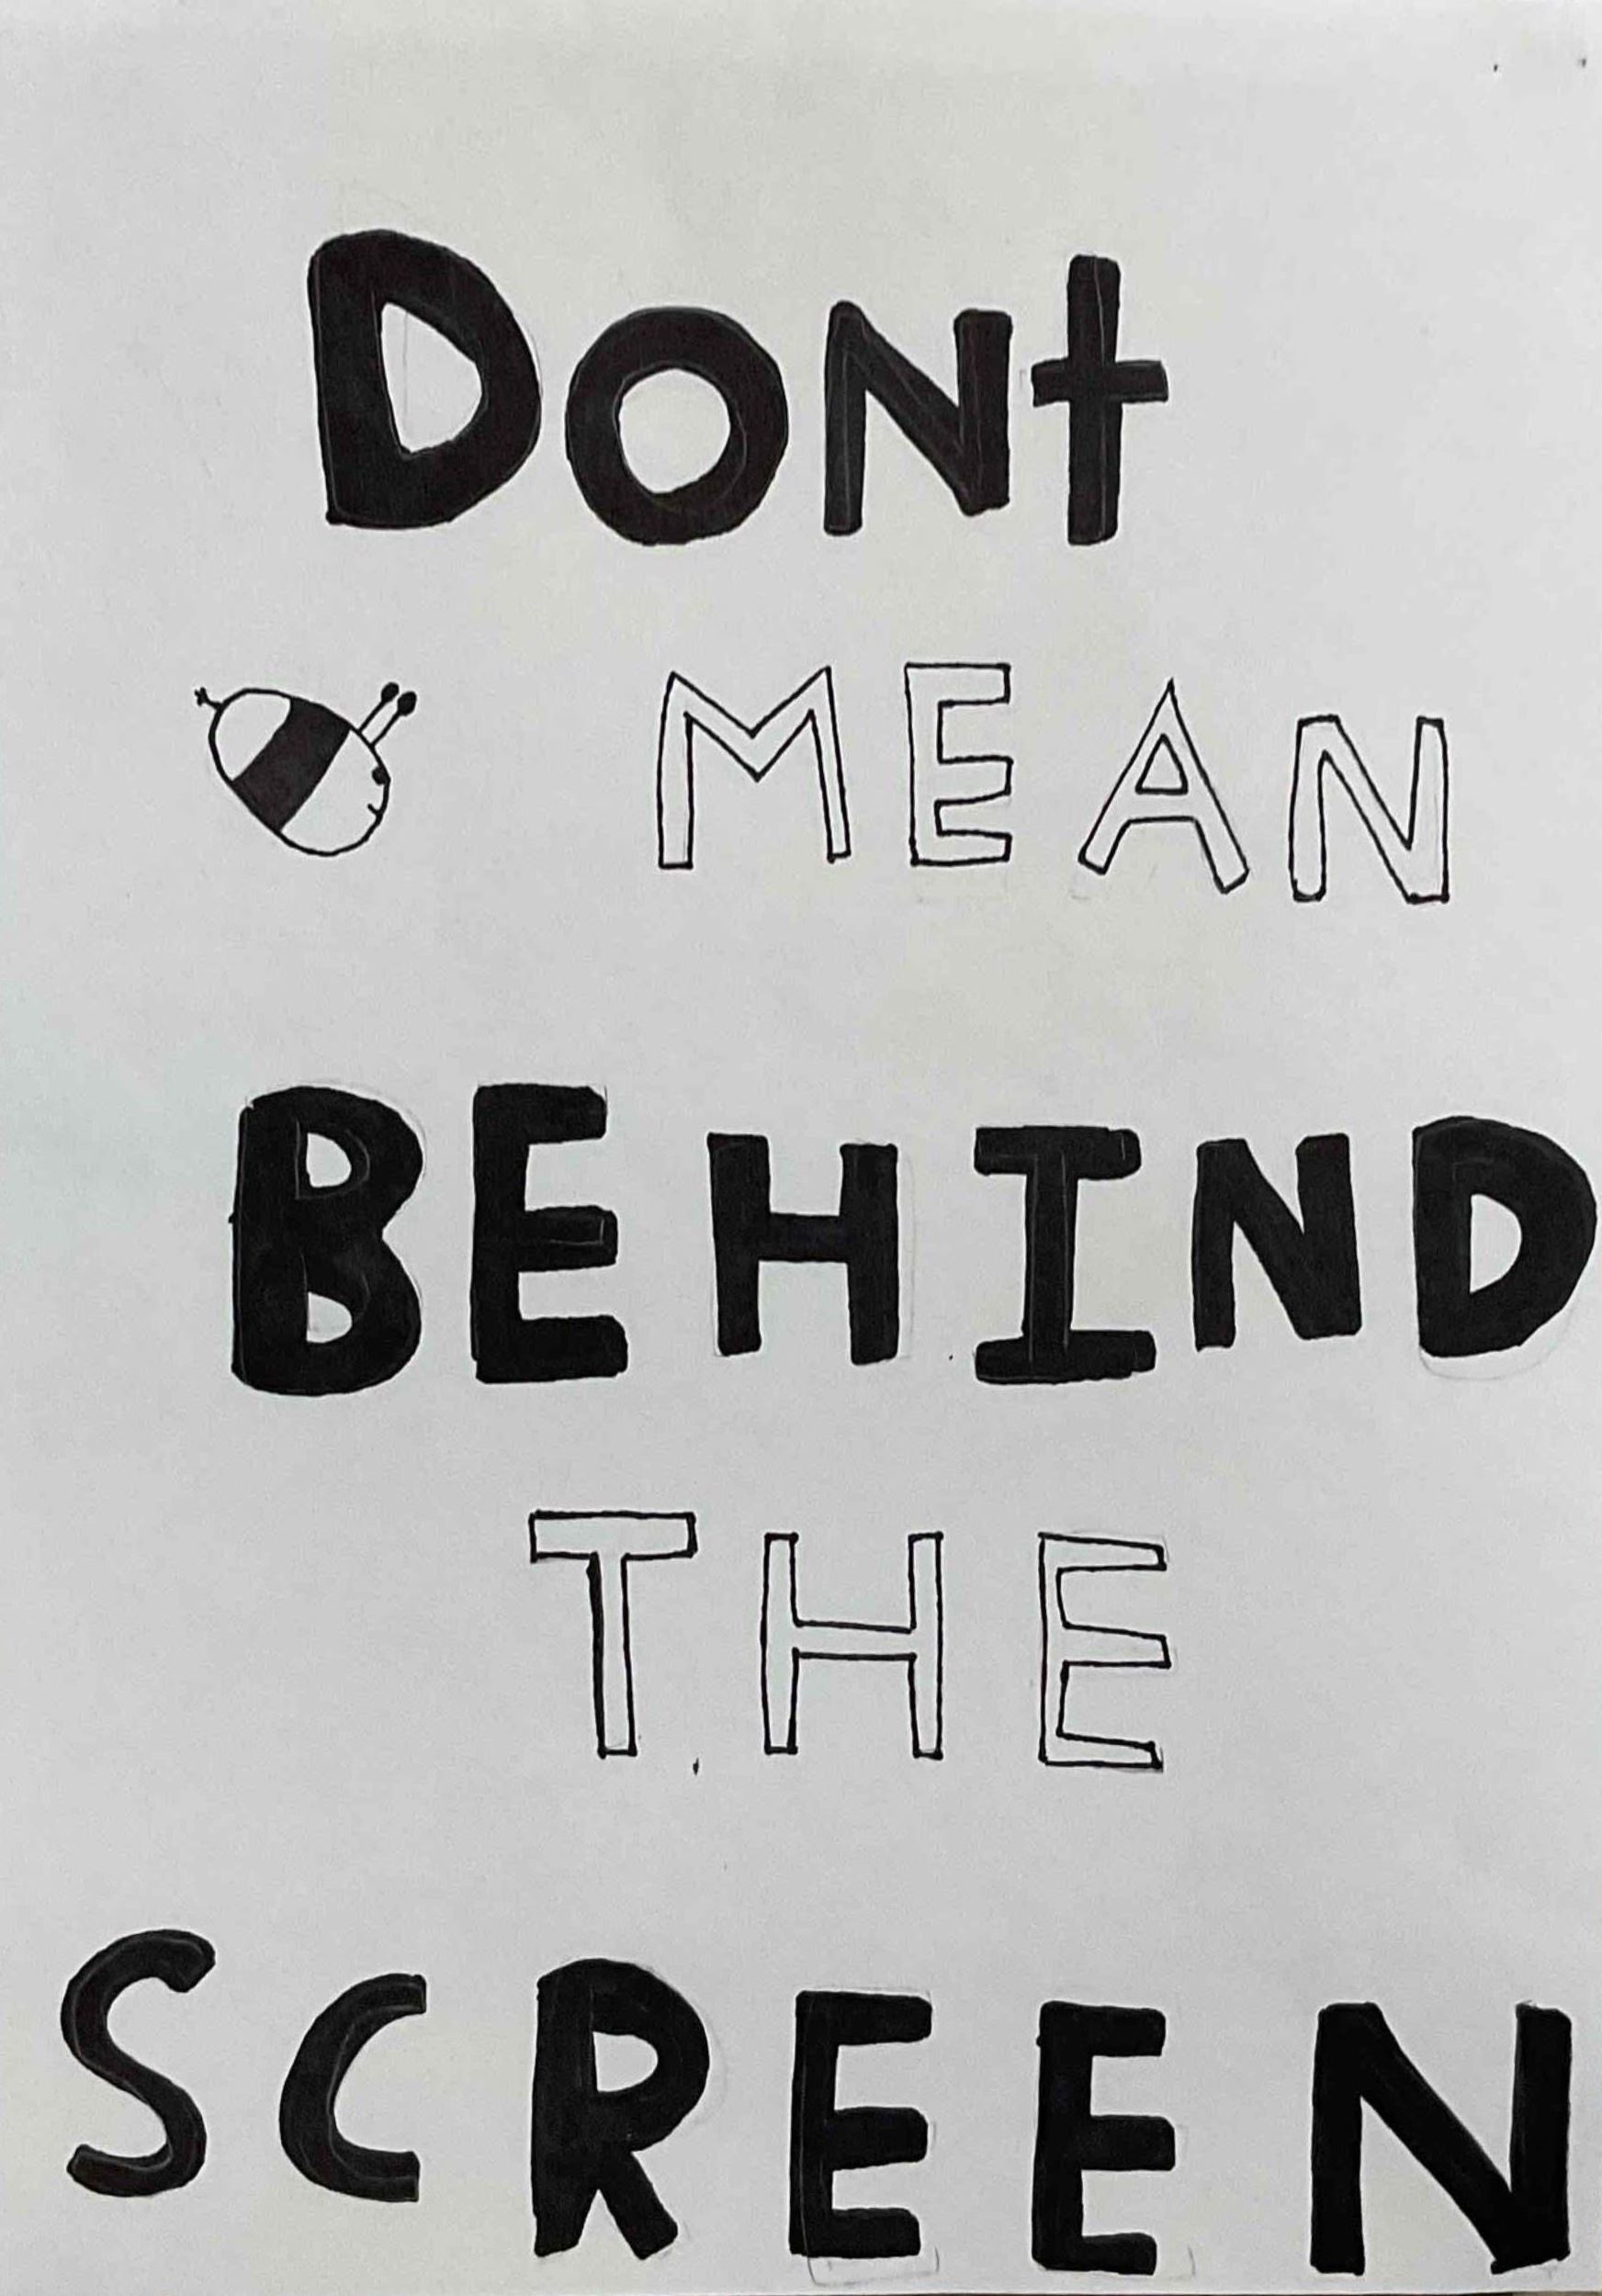 DONt
MEAN
BEHIND
THE
SCREEN